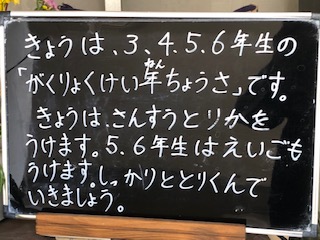 きょうは、3、4、5、6年生の
「がくりょくけい年ねんちょうさ」です。
きょうは、さんすうとりかを
うけます。5、6年生はえいごも
うけます。しっかりととりくんで
いきましょう。